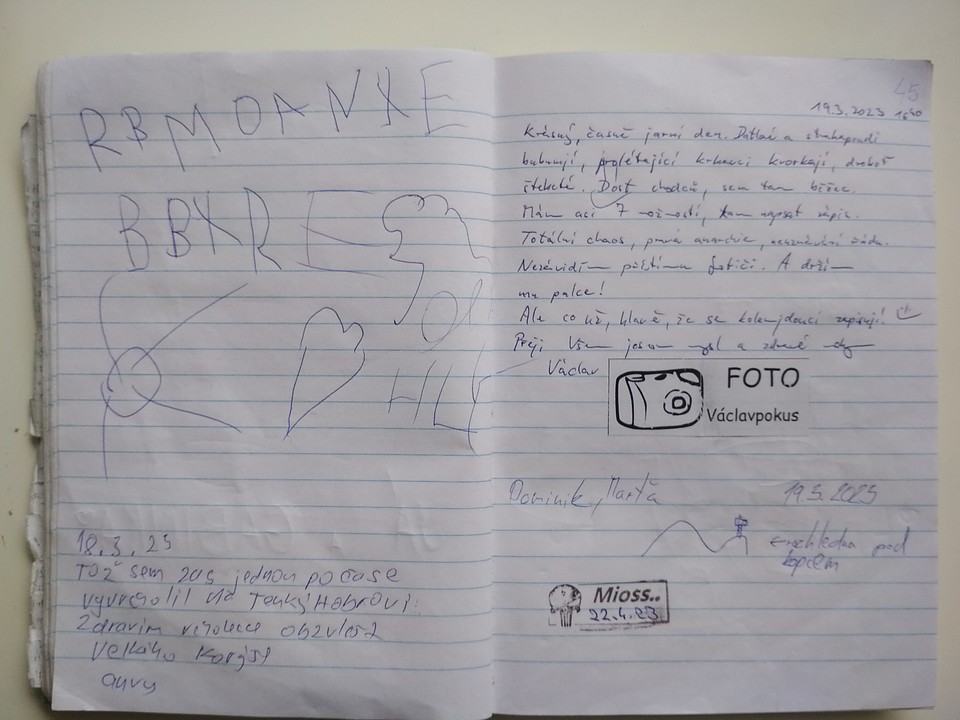 RBMOANXE
BBXRE
HLY
18.3.23
Tož sem zas jednou po čase
vyvrcholil na Tenký Habrovi.
Zdravim všecke obzvlášť
Velkého
ahvy
45
19.3.2023 16:40
Krásný, časně jarní den. Datlové a strakapoudi
bubnují, prolétající krkavci kvorkají, drobot
štěbetá. Dost chodců, sem tam běžec.
Mám asi 7 možností, kam napsat zápis.
Totální chaos, pravá anarchie, neuznávání řádu.
Nezávidím příštímu fotiči. A držím
mu palce!
Ale co už, hlavě, že se kolemjdoucí zapisují!
Přeji Všem jasnou mysl a zdravé
Václav
FOTO
Václavpokus
Dominik, Marťa 19.3.2023
rozhledna pod
kopcem
Mioss..
22.4.23